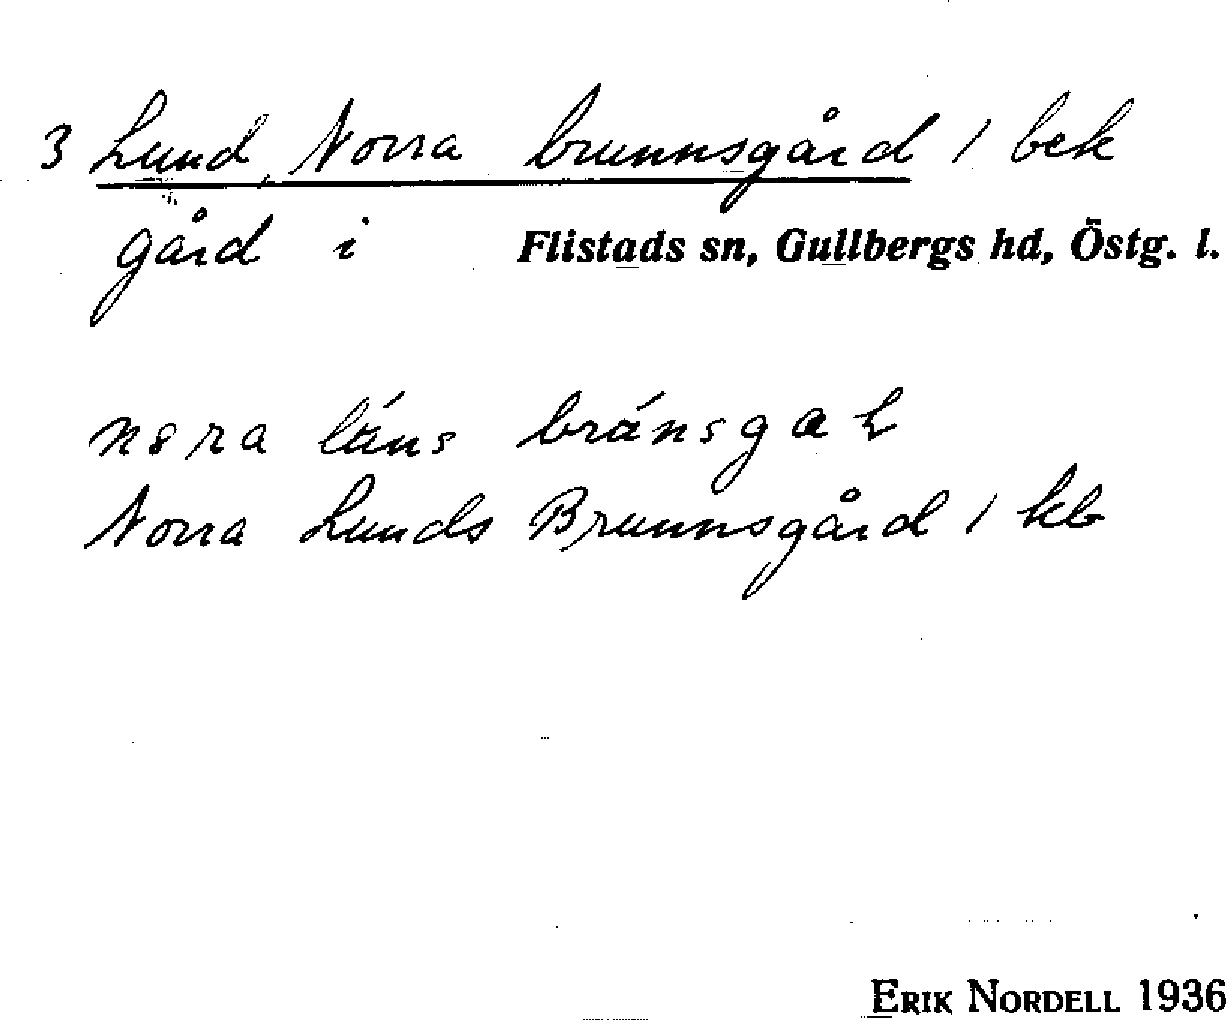 3 Lund, Norra brunnsgård / bek
gård i Flistads sn, Gullbergs hd, Östg. l.
Norra Lunds Brunnsgård / kb
ERIK NORDELL 1936